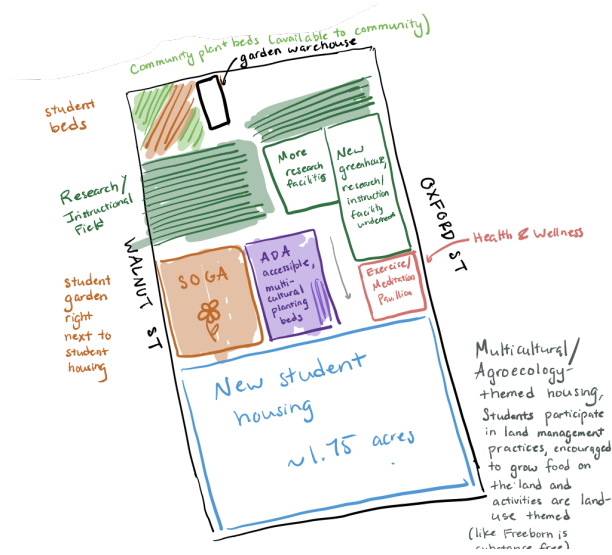 Community plant beds (available to community)
garden warehouse
student
beds
Research/
Instructional
Field
More
research
facilities
New
greenhouse,
research/
instruction
facility
OXFORD ST
WALNUT ST
Health & Wellness
Exercise/
Meditation
Pavillion
SOGA
ADA
accessible,
multi-
cultural
planting
beds
student
garden
right
next to
student
housing
New student
housing
~1.75 acres
Multicultural/
Agroecology-
themed housing,
Students participate
in land management
practices, encouraged
to grow food on
the land and
activities are land-
use themed
(like Freeborn is
substance free)